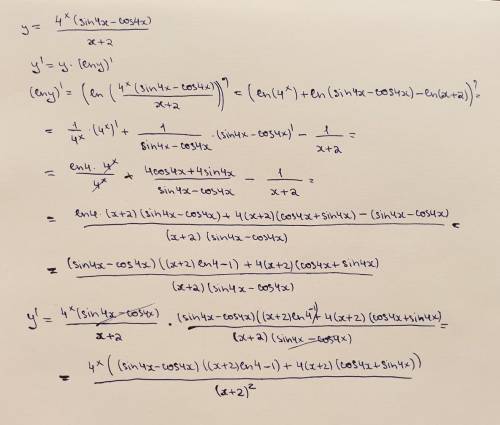 y = 4^x (sin4x-cos4x) / x+2
y' = y · (lny)'
(lny)' = (ln (4^x (sin4x-cos4x) / x+2))' = (ln(4^x)+ln(sin4x-cos4x)-ln(x+2))' =
= 1/4^x · (4^x)' + 1/(sin4x-cos4x) · (sin4x-cos4x)' - 1/(x+2) =
= ln4 · 4^x / 4^x + (4cos4x+4sin4x)/(sin4x-cos4x) - 1/(x+2) =
= ln4 · (x+2) (sin4x-cos4x) + 4(x+2)(cos4x+sin4x) - (sin4x-cos4x) / (x+2) (sin4x-cos4x) =
= (sin4x-cos4x) ((x+2)ln4-1) + 4(x+2)(cos4x+sin4x) / (x+2) (sin4x-cos4x)
y' = 4^x (sin4x-cos4x) / x+2 · (sin4x-cos4x) ((x+2)ln4-1) + 4(x+2) (cos4x+sin4x) / (x+2) (sin4x-cos4x) =
= 4^x ((sin4x-cos4x) ((x+2)ln4-1) + 4(x+2) (cos4x+sin4x)) / (x+2)^2